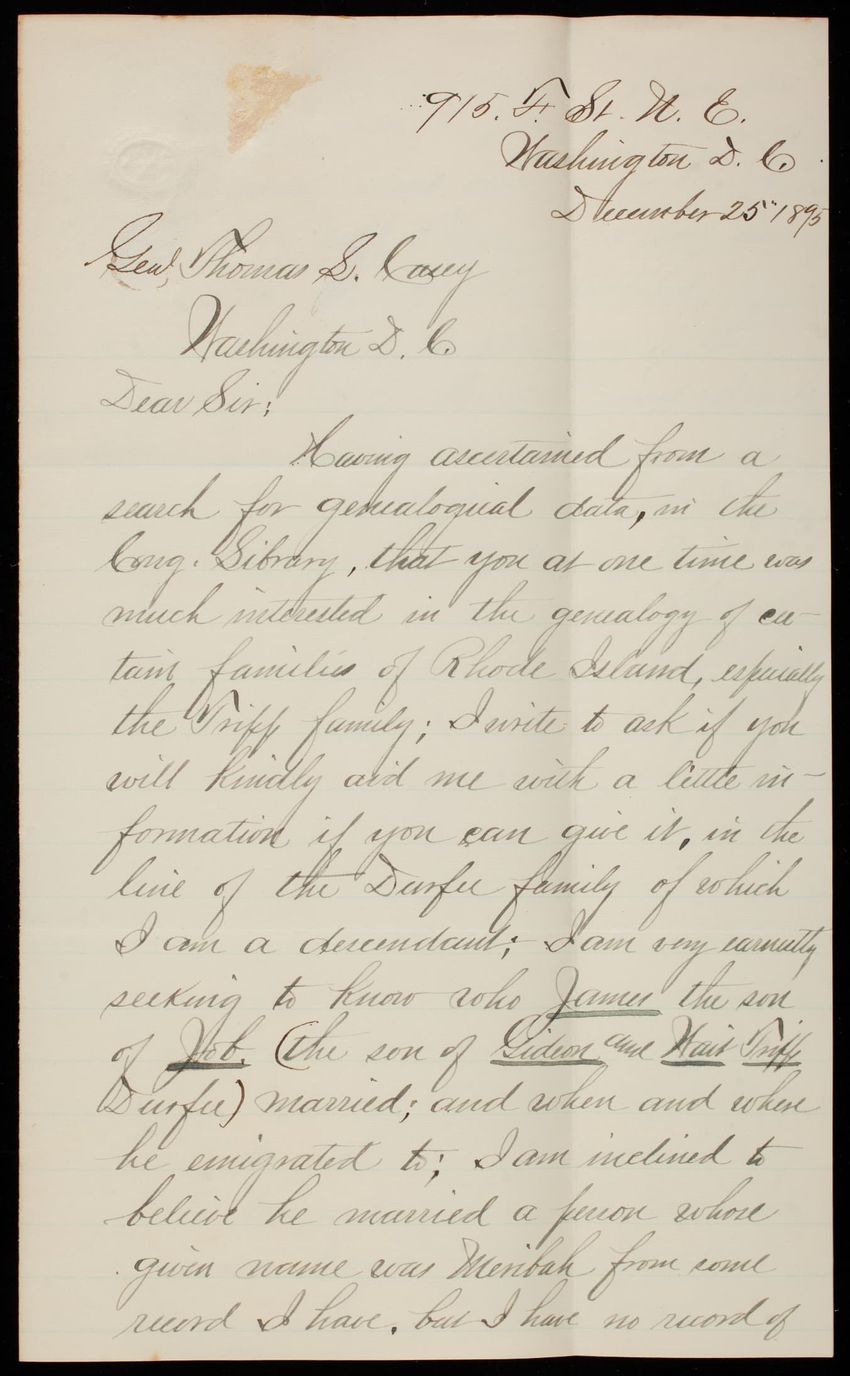 915. F. St. N. E.
Washington D. C.
December 25" 1895
Genl. Thomas L. Casey
Washington D. C.
Dear Sir;
Having ascertained from a
search for genealogical data, in the
Cong. Library, that you at one time was
much interested in the genealogy of cer-
tain families of Rhode Island, especially
the Tripp family; I write to ask if you
will kindly aid me with a little in-
formation if you can give it, in the
line of the Durfee family of which
I am a descendant; I am very earnestly
seeking to know who James the son
of Job. (the son of Gideon and Wait Tripp
Durfee) married; and when and where
he emigrated to; I am inclined to
believe he married a person whose
given name was Meribah from some
record I have, but I have no record of